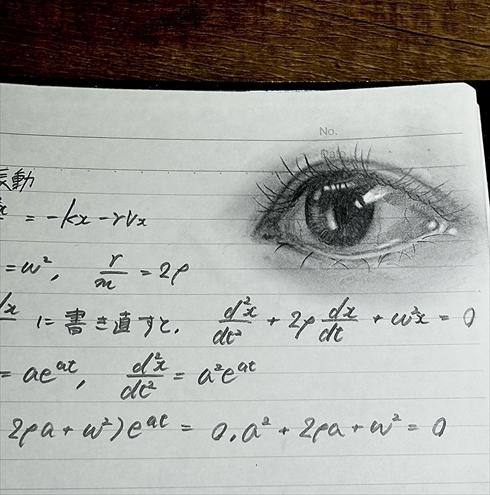 No.
Date
振動
= -kx - rvx
= ω², r/m = 2ρ
dx に書き直すと, d²x/dt² + 2ρ dx/dt + ω²x = 0
= ae^at, d²x/dt² = a²e^at
2ρa + ω²)e^at = 0, a² + 2ρa + ω² = 0